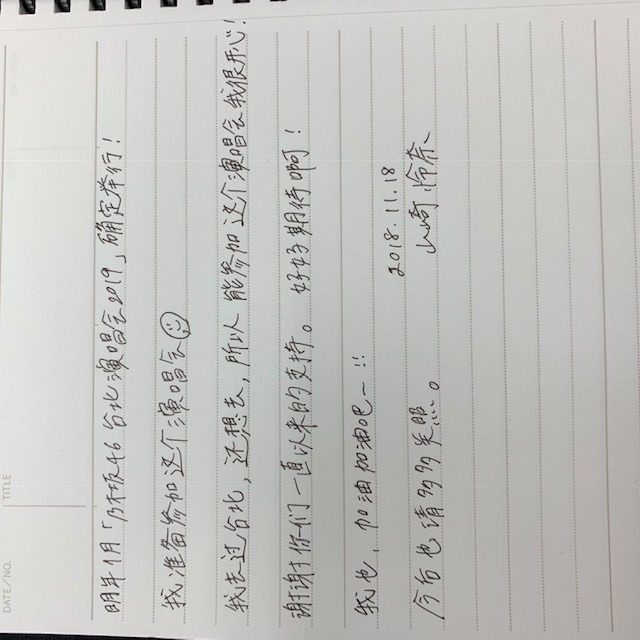 DATE/NO.
TITLE
明年1月「乃木坂46 台北演唱会2019」确定举行!
我准备参加这个演唱会☺
我去过台北,还想去,所以 能参加 这个演唱会 我很开心!
谢谢你们一直以来的支持。 好好期待啊!
我也、加油加油吧〜!!
今后也请多多关照。
2018.11.18
山崎 怜奈